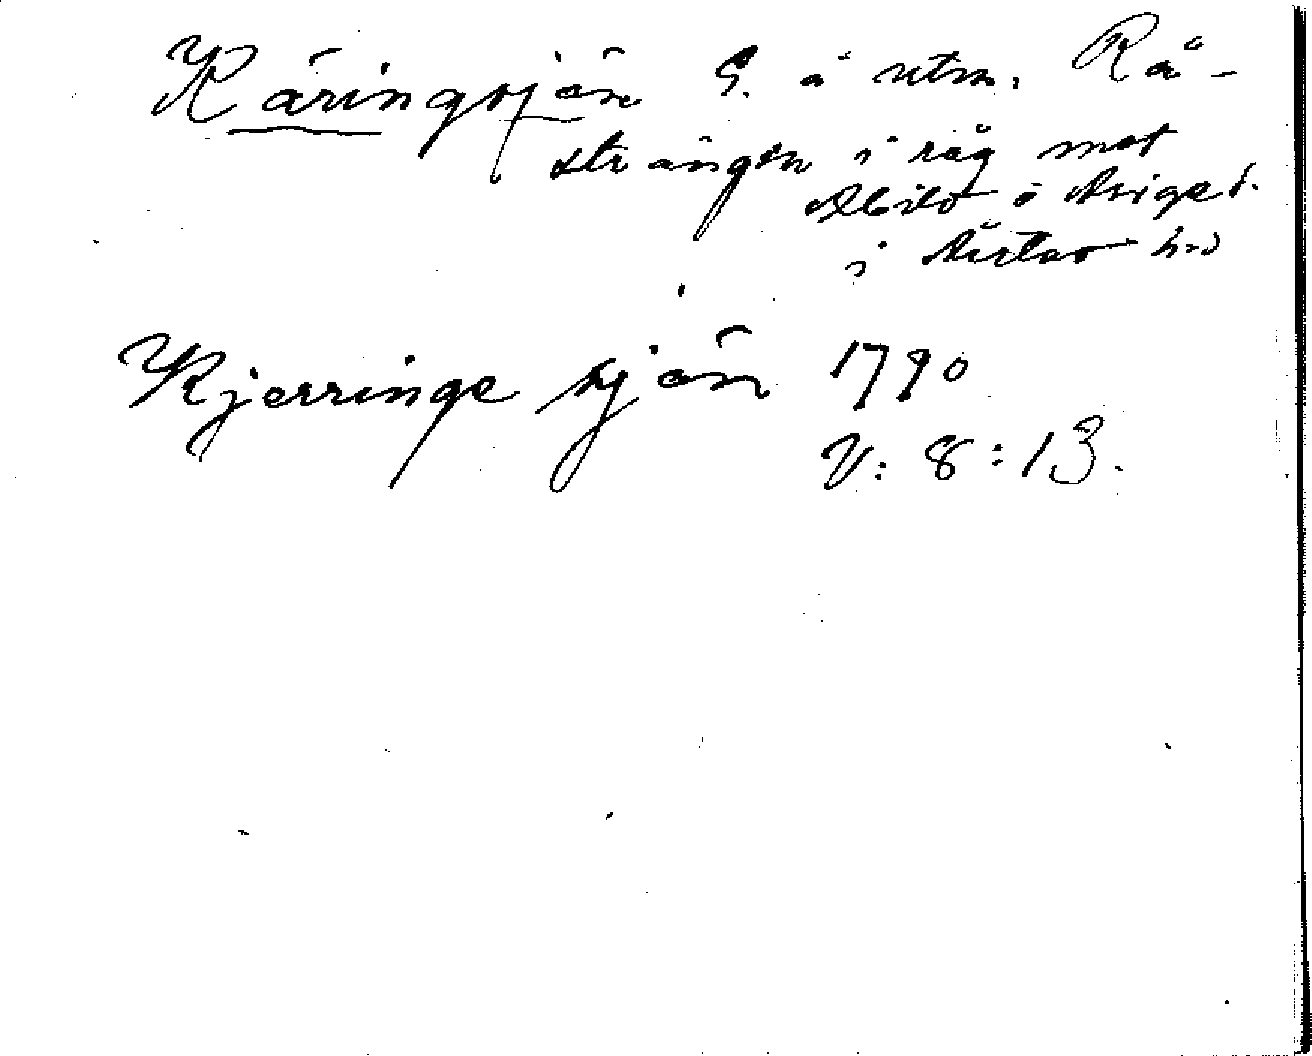 Käringsjön S. å utm. Rå-
strången i råg mot
Abild o Asige s.
i Årstad hd
Kjerringe sjön 1790
V: 8:13.